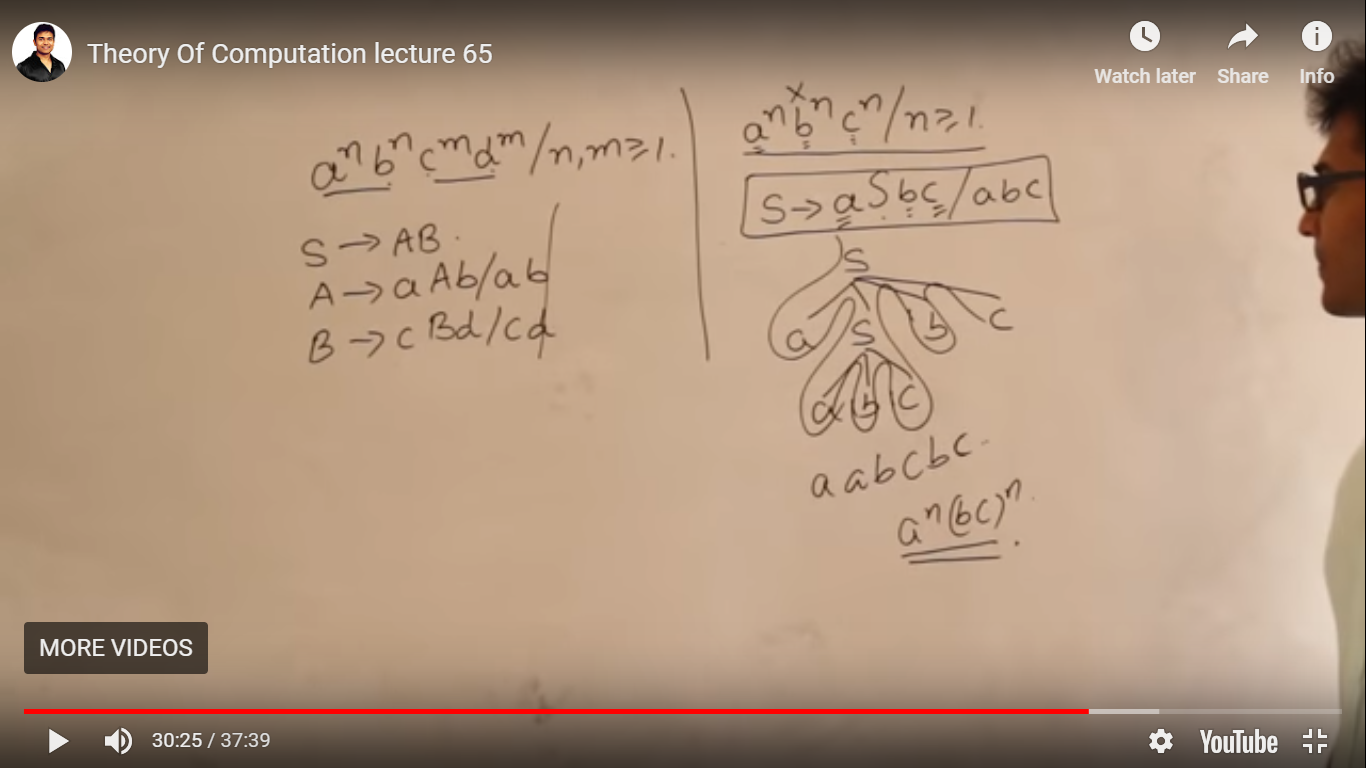 Theory Of Computation lecture 65
Watch later Share Info
aⁿbⁿcᵐdᵐ/n,m≥1.
S→AB.
A→aAb/ab
B→cBd/cd
x
aⁿbⁿcⁿ/n≥1.
S→aSbc/abc
S
a S b c
a b c
aabcbc.
aⁿ(bc)ⁿ.
MORE VIDEOS
30:25 / 37:39
YouTube